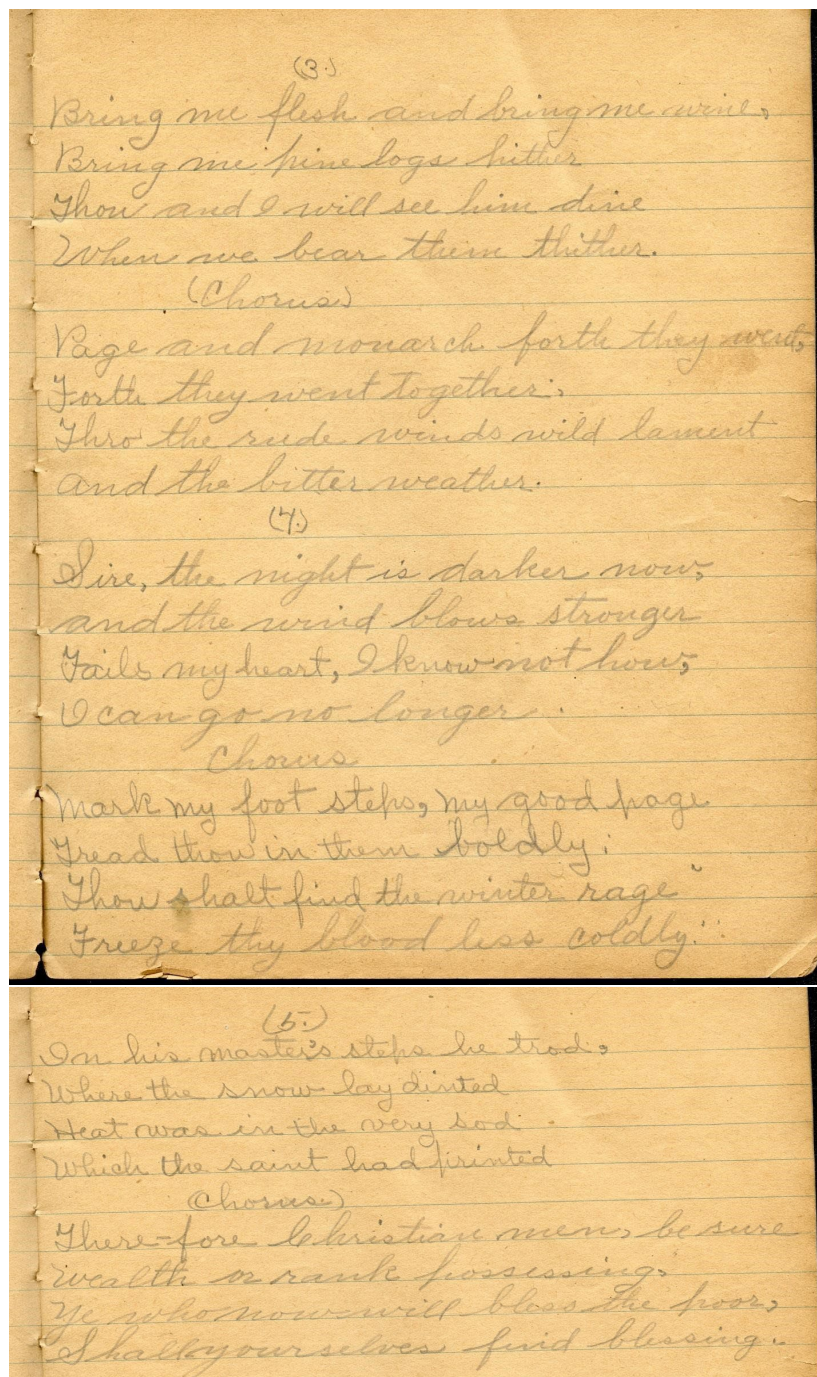 (3.)
Bring me flesh and bring me wine,
Bring me pine logs hither
Thou and I will see him dine
When we bear them thither.
(Chorus)
Page and monarch forth they went,
Forth they went together.,
Thro the rude winds wild lament
and the bitter weather.
(4.)
Sire, the night is darker now,
and the wind blows stronger
Fails my heart, I know not how,
I can go no longer.
Chorus
Mark my foot steps, my good page
Tread thou in them boldly;
Thou shalt find the winter rage
Freeze thy blood less coldly."
(5.)
In his master's steps he trod,
Where the snow lay dinted
Heat was in the very sod.
Which the saint had printed
(Chorus)
There-fore Christian men, be sure
Wealth or rank possessing,
Ye who now will bless the poor,
Shall yourselves find blessing.